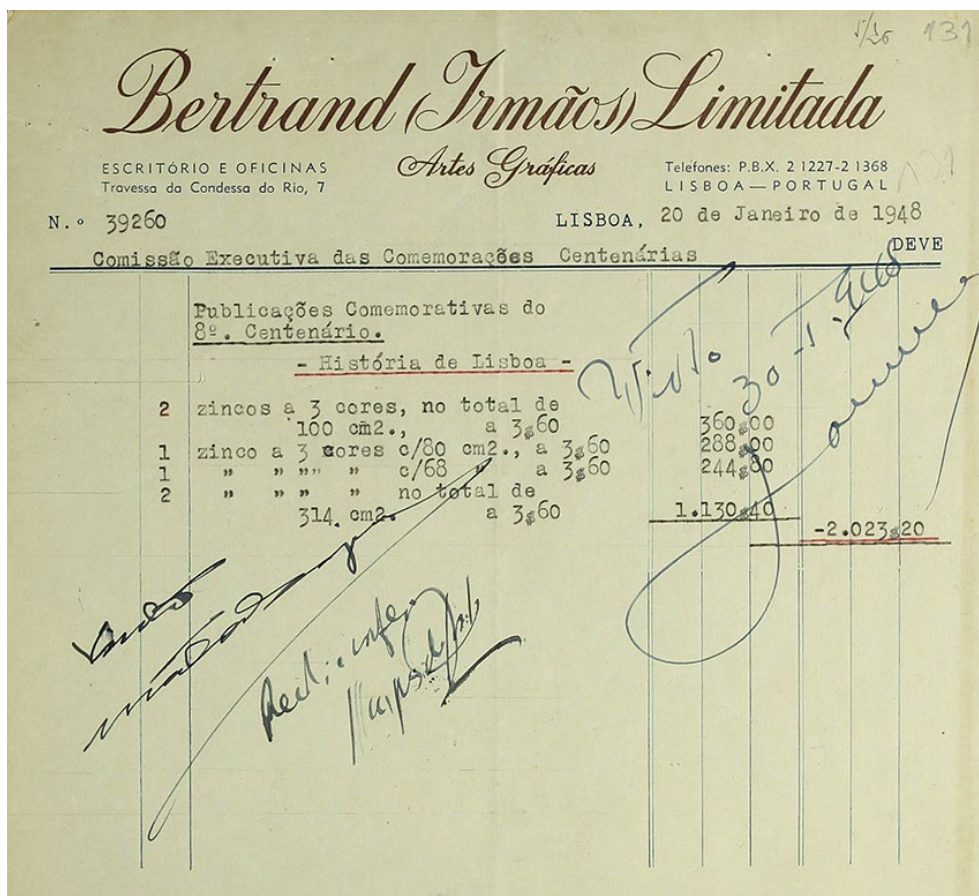 131
Bertrand (Irmãos) Limitada
Artes Gráficas
ESCRITÓRIO E OFICINAS
Travessa da Condessa do Rio, 7
Telefones: P.B.X. 2 1227-2 1368
LISBOA — PORTUGAL
131
N.º 39260
LISBOA, 20 de Janeiro de 1948
DEVE
Comissão Executiva das Comemorações Centenárias
Publicações Comemorativas do
8º. Centenário.
- História de Lisboa -
Visto
30-1-948
2 zincos a 3 cores, no total de
100 cm2., a 3$60 360$00
1 zinco a 3 cores c/80 cm2., a 3$60 288$00
1 " " "" " c/68 " a 3$60 244$80
2 " " " " no total de
314. cm2. a 3$60 1.130$40
-2.023$20